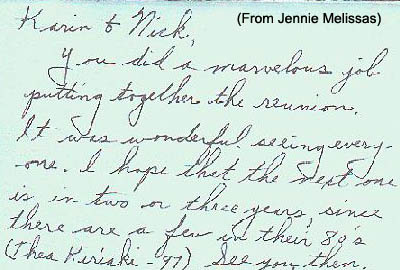 (From Jennie Melissas)
Karin & Nick,
You did a marvelous job
putting together the reunion.
It was wonderful seeing every-
-one. I hope that the next one
is in two or three years, since
there are a few in their 80's
(Thea Kiriaki - 97) See you then.